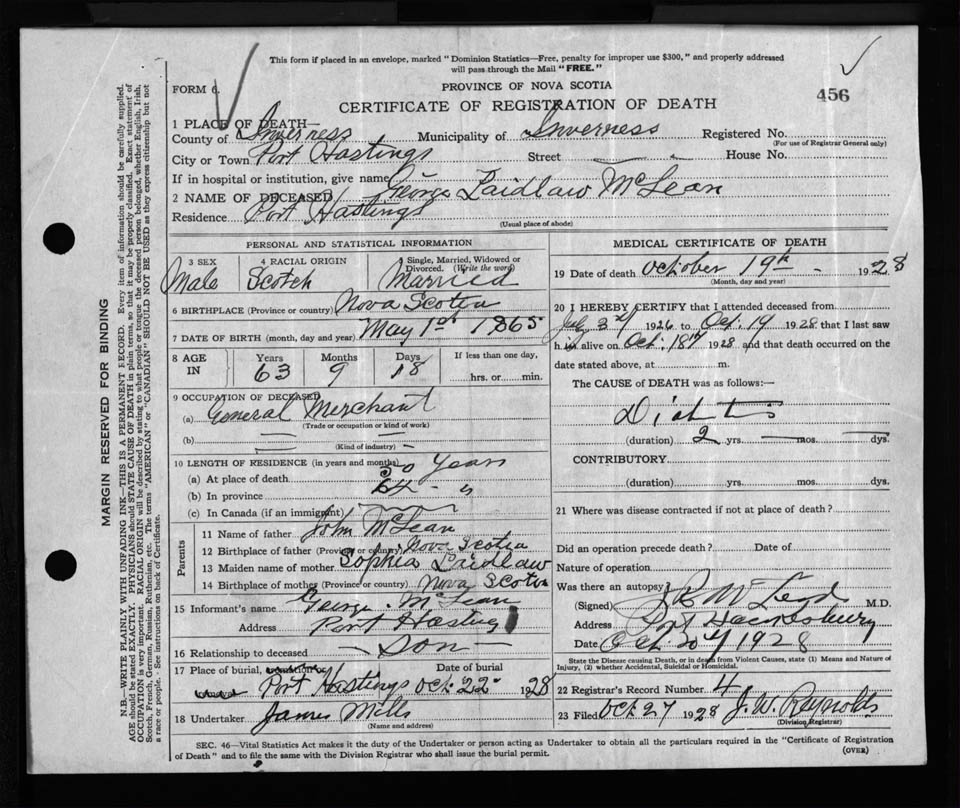 This form if placed in an envelope, marked "Dominion Statistics—Free, penalty for improper use $300," and properly addressed
will pass through the Mail "FREE."
FORM 6.
PROVINCE OF NOVA SCOTIA
CERTIFICATE OF REGISTRATION OF DEATH
456
1 PLACE OF DEATH—
County of Inverness Municipality of Inverness Registered No.
(For use of Registrar General only)
City or Town Port Hastings Street House No.
If in hospital or institution, give name
2 NAME OF DECEASED George Laidlaw McLean
Residence Port Hastings
(Usual place of abode)
PERSONAL AND STATISTICAL INFORMATION
3 SEX 4 RACIAL ORIGIN 5 Single, Married, Widowed or Divorced. (Write the word)
Male Scotch Married
6 BIRTHPLACE (Province or country) Nova Scotia
7 DATE OF BIRTH (month, day and year) May 1st 1865
8 AGE IN Years Months Days If less than one day,
63 9 18 hrs. or min.
9 OCCUPATION OF DECEASED
(a) General Merchant
(Trade or occupation or kind of work)
(b)
(Kind of industry)
10 LENGTH OF RESIDENCE (in years and months)
(a) At place of death 30 Years
(b) In province 64 - "
(c) In Canada (if an immigrant)
Parents
11 Name of father John McLean
12 Birthplace of father (Province or country) Nova Scotia
13 Maiden name of mother Sophia Laidlaw
14 Birthplace of mother (Province or country) Nova Scotia
15 Informant's name George McLean
Address Port Hastings
16 Relationship to deceased - Son -
17 Place of burial, Date of burial
Port Hastings Oct. 22 - 1928
18 Undertaker James Mills
(Name and address)
MEDICAL CERTIFICATE OF DEATH
19 Date of death October 19th - 1928
(Month, day and year)
20 I HEREBY CERTIFY that I attended deceased from
July 3rd 1926 to Oct. 19 1928 that I last saw
h im alive on Oct. 18th 1928 and that death occurred on the
date stated above, at m.
The CAUSE OF DEATH was as follows:—
(duration) 2 yrs. mos. dys.
CONTRIBUTORY.
(duration) yrs. mos. dys.
21 Where was disease contracted if not at place of death?
Did an operation precede death? Date of
Nature of operation
Was there an autopsy
(Signed) McLeod M.D.
Address Port Hawkesbury
Date Oct 20th 1928
State the Disease causing Death, or in death from Violent Causes, state (1) Means and Nature of
Injury, (2) whether Accidental, Suicidal or Homicidal.
22 Registrar's Record Number 4
23 Filed Oct. 27 1928 J. W. Reynolds
(Division Registrar)
SEC. 46—Vital Statistics Act makes it the duty of the Undertaker or person acting as Undertaker to obtain all the particulars required in the "Certificate of Registration
of Death" and to file the same with the Division Registrar who shall issue the burial permit.
(OVER)
MARGIN RESERVED FOR BINDING
N.B.—WRITE PLAINLY WITH UNFADING INK—THIS IS A PERMANENT RECORD. Every item of information should be carefully supplied.
AGE should be stated EXACTLY. PHYSICIANS should STATE CAUSE OF DEATH in plain terms, so that it may be properly classified. Exact statement of
OCCUPATION is very important. RACIAL ORIGIN will be described by stating to what people or tongue the deceased person belonged, whether English, Irish,
Scotch, French, German, Russian, Ruthenian, etc. The terms "AMERICAN" or "CANADIAN" SHOULD NOT BE USED as they express citizenship but not
a race or people. - See instructions on back of Certificate.